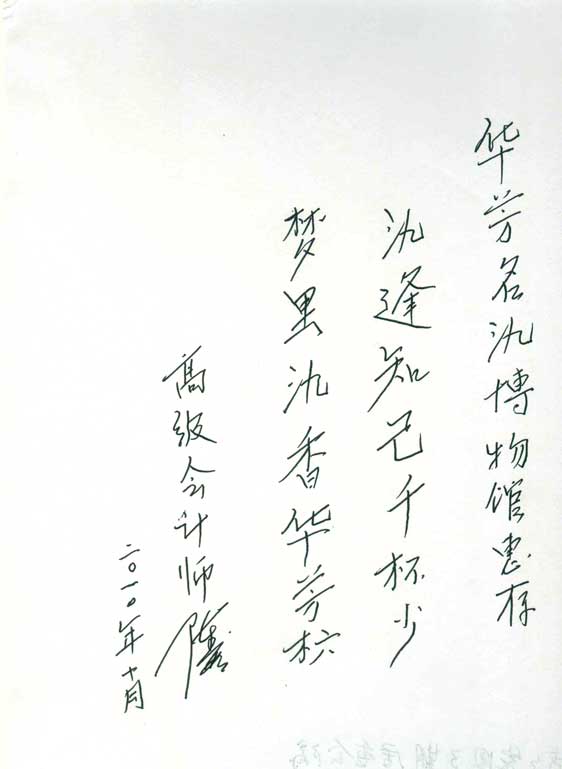 华芳名氿博物馆惠存
氿逢知己千杯少
梦里氿香华芳
高级会计师
二〇一〇年十月